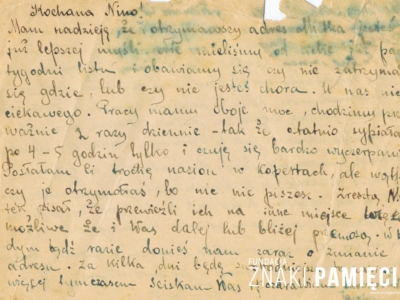 Kochana Nino!
Mam nadzieję że otrzymawszy adres Mietka jesteś
już lepszej myśli. Nie mieliśmy od Ciebie już parę
tygodni listu i obawiamy się czy nie zatrzyma
się gdzie, lub czy nie jesteś chora. U nas nic
ciekawego. Pracy mamy oboje moc, chodzimy prze
ważnie 2 razy dziennie - tak że ostatnio sypiała
po 4-5 godzin tylko i czuję się bardzo wyczerpan
Posłałam Ci trochę nasion w kopertach, ale wątp
czy je otrzymałaś, bo nic nie piszesz. Zresztą
tek pisał, że przewieźli ich na inne miejsce
możliwe że i Was dalej lub bliżej przewiozą. W
dym bądź razie donieś nam zaraz o zmianie
adresu. Za kilka dni będę
więcej tymczasem ściskam Was
FUNDACJA
ZNAKI PAMIĘCI